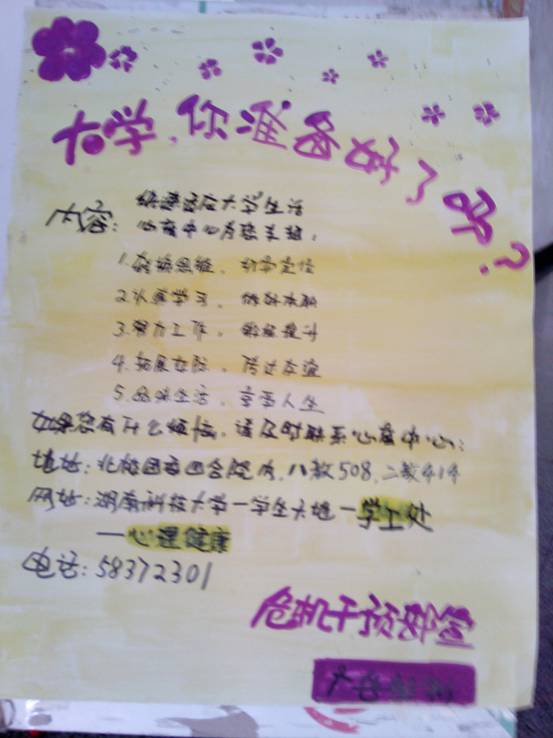 大学,你准备好了吗?
内容: 快速适应大学生活
心育中心为您支招,
1.转换思维, 科学定位
2.认真学习, 做好本职
3.努力工作, 锻炼提升
4.拓展交际,
5.品味生活, 享受人生
如果您有什么烦恼, 请及时联系心育中心:
地址:北校园西四合院内,八教508,二教414
网址:湖南科技大学—学生天地—学工处
—心理健康
电话:58372301
危机干预部宣